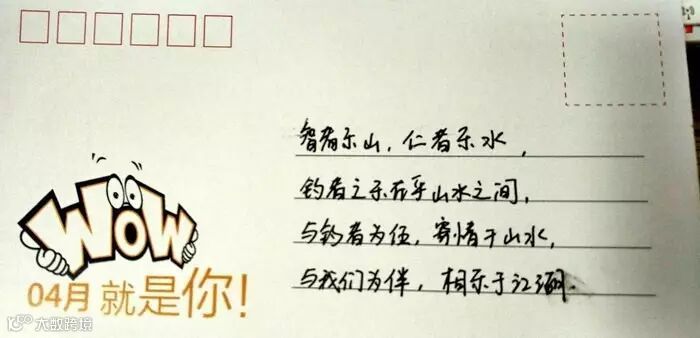 智者乐山，仁者乐水，
钓者之乐在乎山水之间，
与钓者为伍，寄情于山水，
与我们为伴，相乐于江湖.
WOW
04月就是你！
大数跨境